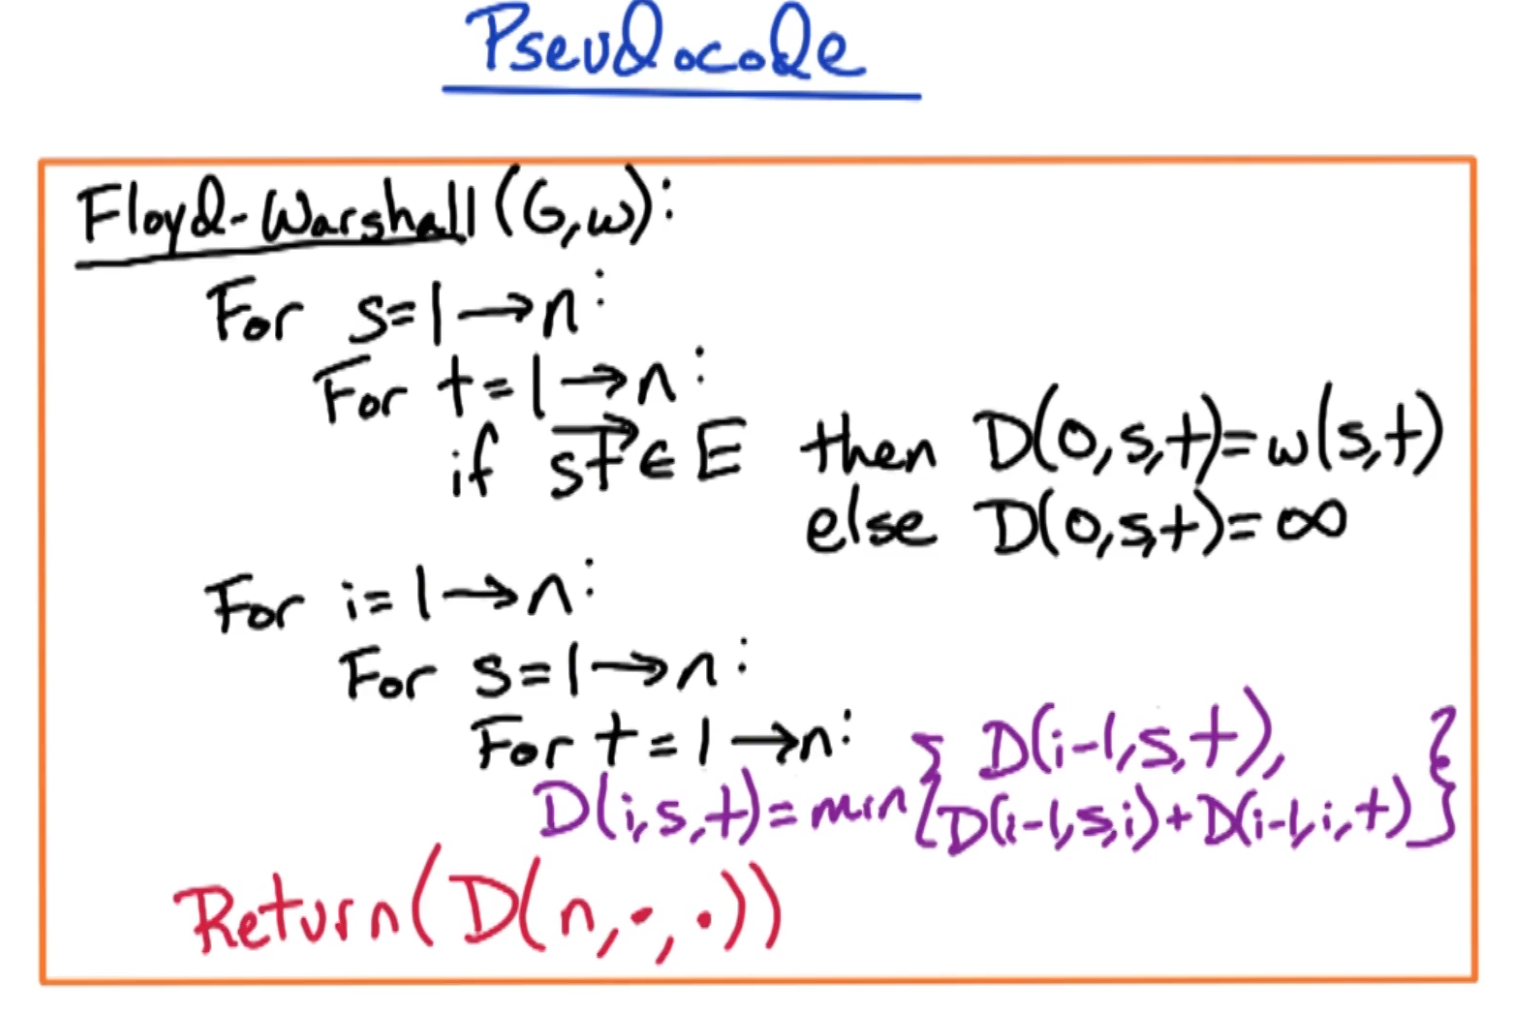 Pseudocode
Floyd-Warshall(G,w):
For s=1→n:
For t=1→n:
if st∈E then D(0,s,t)=w(s,t)
else D(0,s,t)=∞
For i=1→n:
For s=1→n:
For t=1→n:
D(i,s,t)=min{D(i-1,s,t),
D(i-1,s,i)+D(i-1,i,t)}
Return(D(n,·,·))